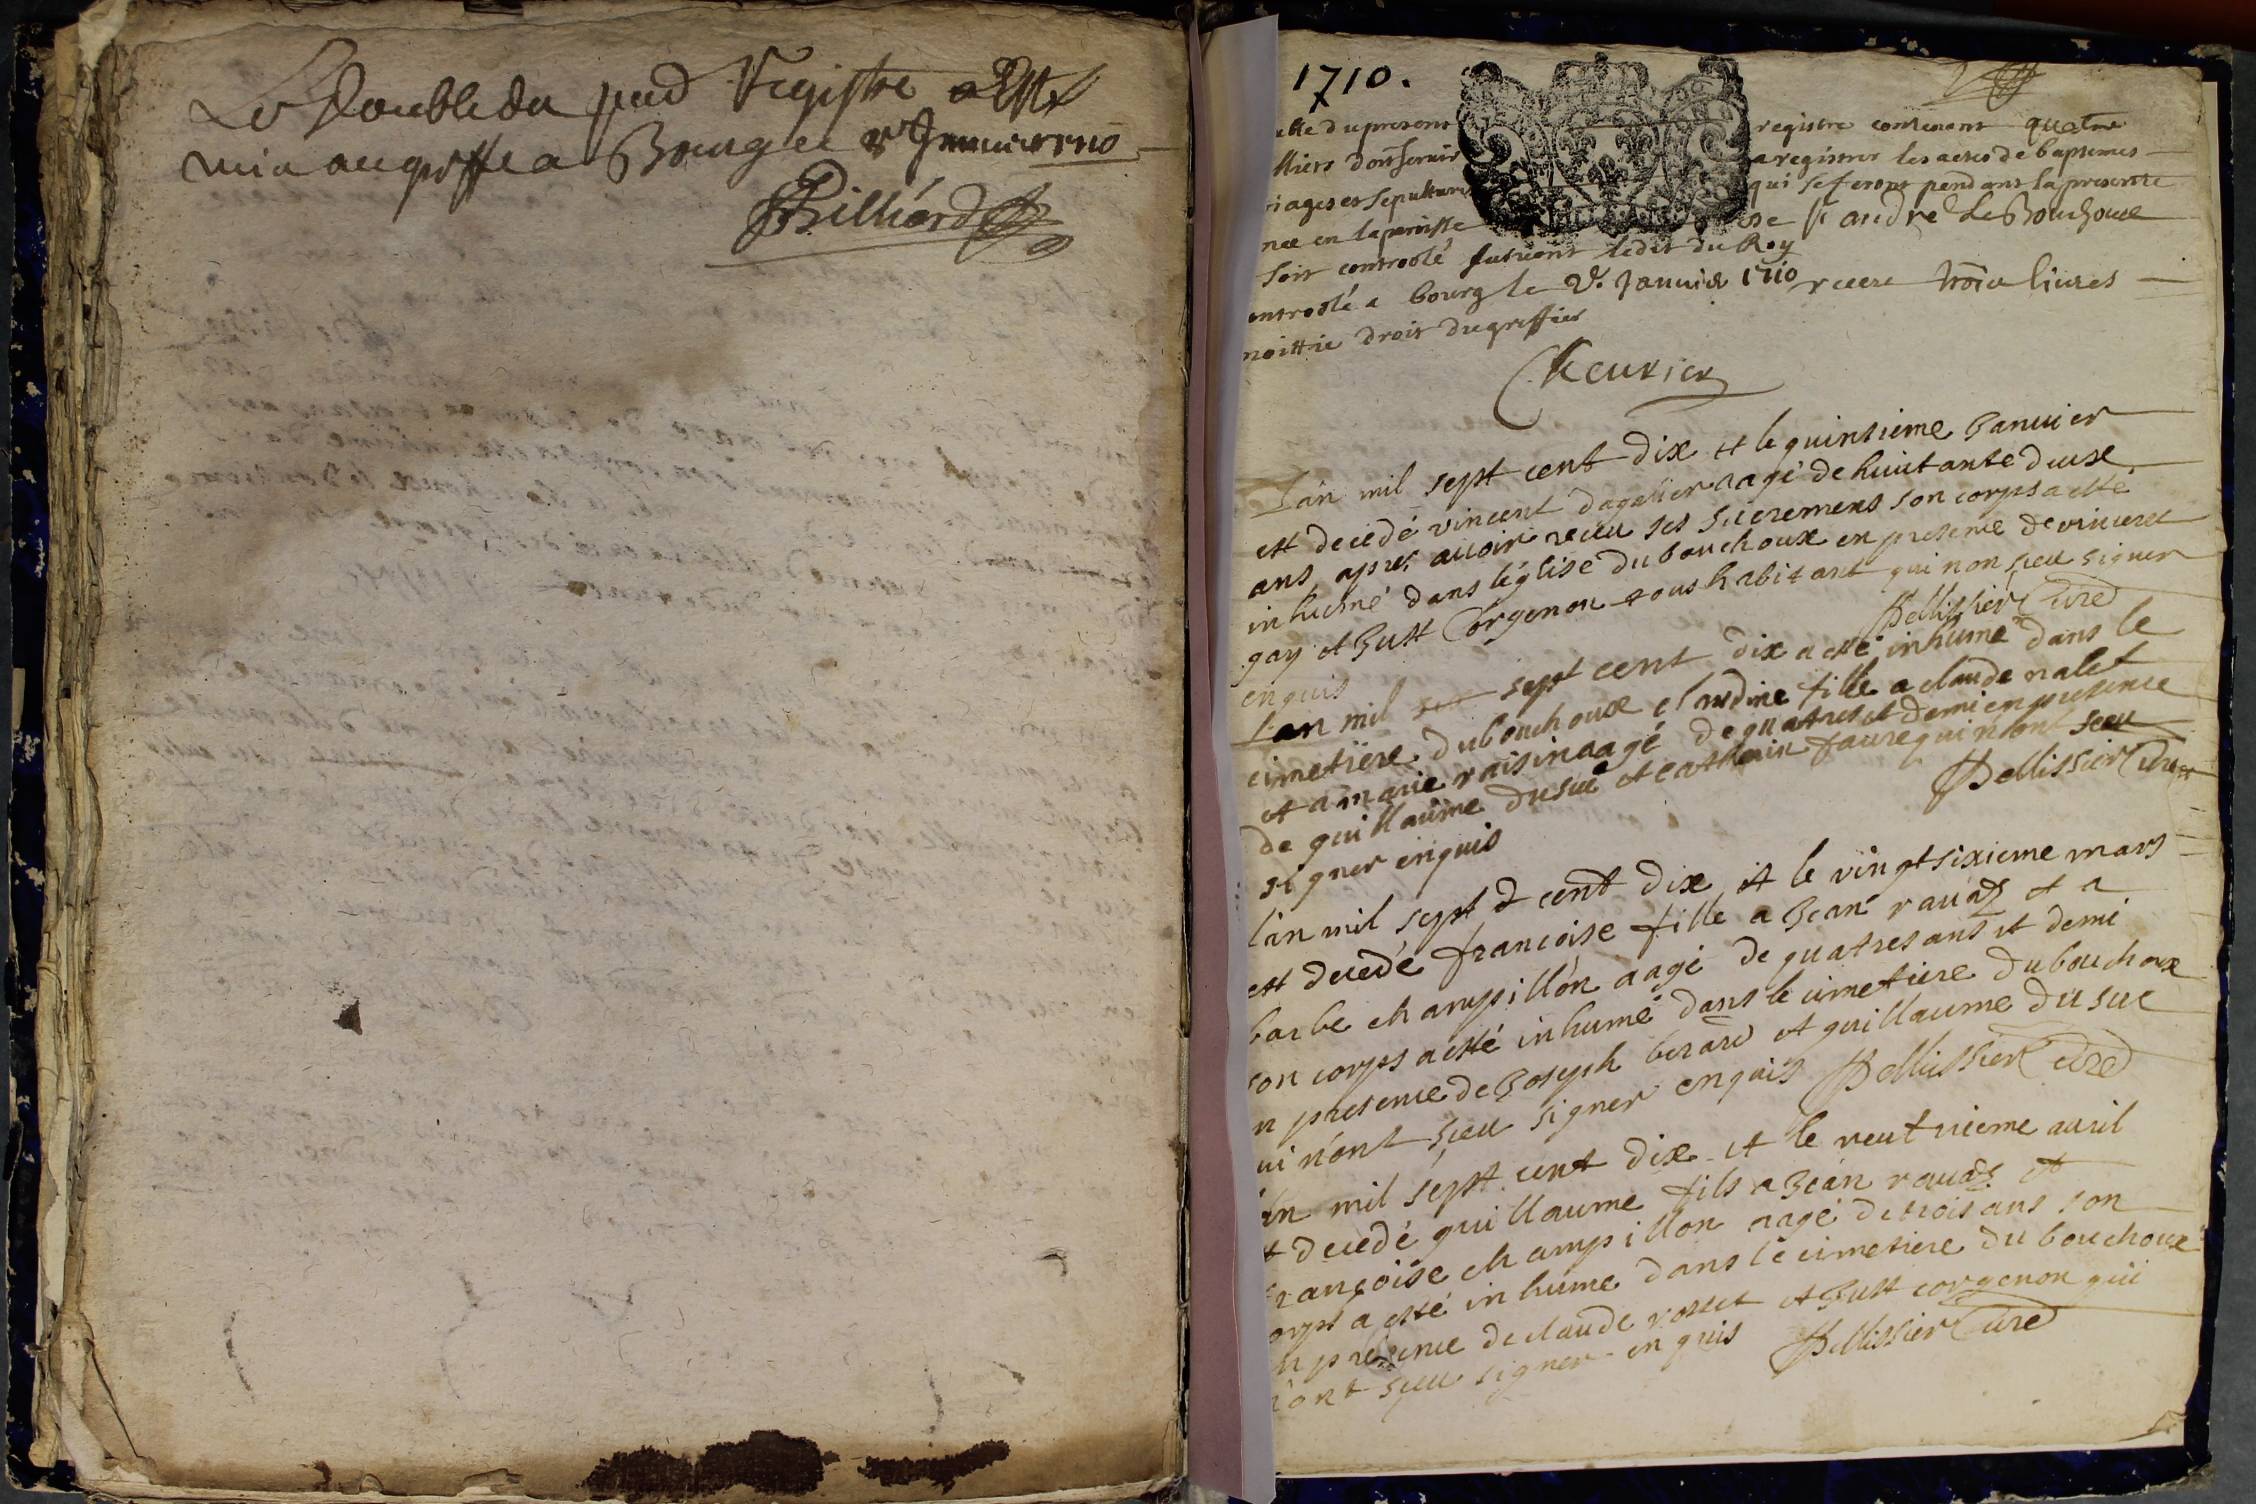 Le Double du pnd Registre a Este
mis au greffe a Bourg le Januier 1710
Billiard
1710.
du present registre contenant quatre
doit seruir a registrer les actes de baptemes
riages et sepultures qui se feront pendant la presente
nee en la paroisse st andré le Bouchoux
soit controolé suiuant ledit du Roy
ontroolé a bourg le Januier 1710 receu trois liures
moittie droit du greffier
Cheurier
L'an mil sept cent dix et le quinsieme Januier
est decedé vincent dagallier aagé de huitante deux
ans apres auoir receu ses sacremens son corps a esté
inhumé dans leglise du bouchoux en presence de vincent
gay et Just Corgenon tous habitant qui non sceu signer
enquis Pellissier Curé
L'an mil sept cent dix a esté inhumé dans le
cimetiere du bouchoux claudine fille a claude nalet
et a marie raisin aagé de quatres et demi en presence
de guillaume du suc et cathrin faure qui n'ont sceu
signer enquis Pellissier Curé
l'an mil sept cent dix et le vingt sixieme mars
est decedé francoise fille a Jean rauaz et a
barbe champillon aagé de quatres ans et demi
son corps a esté inhumé dans le cimetiere du bouchoux
n presence de Joseph berard et guillaume du suc
ui n'ont sceu signer enquis Pellissier Curé
an mil sept cent dix et le neutuieme auril
t decedé guillaume fils a Jean rauaz et
françoise champillon aagé de trois ans son
orps a esté inhumé dans le cimetiere du bouchoux
n presence de claude rosset et Just corgenon qui
n'ont sceu signer enquis Pellissier Curé